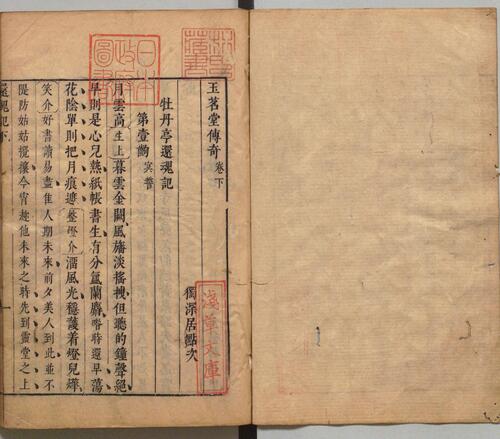 玉茗堂傳奇 卷下
獨深居點次
牡丹亭還魂記
第壹齣 㝠誓
月雲高生上暮雲金闕風旛淡搖拽但聽的鐘聲絕
早則是心兒熱紙帳書生有分氳蘭麝啫時還早蕩
花陰單則把月痕遮整燈介溜風光穩護着燈兒燁
笑介好書讀易盡佳人期未來前夕美人到此並不
隄防姑姑攪攘今宵趂他未來之時先到雲堂之上
還魂記下
日本
政府
圖書
淺草文庫